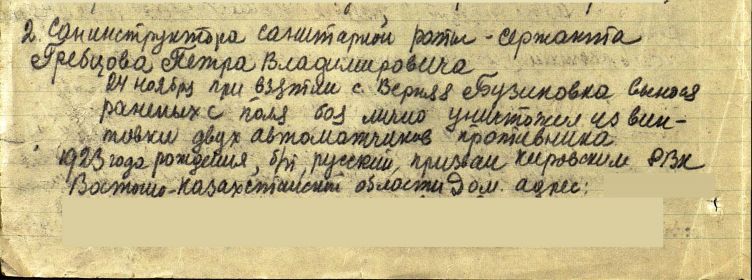 2. Санинструктора санитарной роты - сержанта
Гребцова Петра Владимировича
24 ноября при взятии с Верняя Бузиновка вынося
раненых с поля боя лично уничтожел из вин-
товки двух автоматчиков противника
1923 года рождения, б/п, русский, призван Кировским РВК
Востошо-Казахстанской области Дом. адрес: